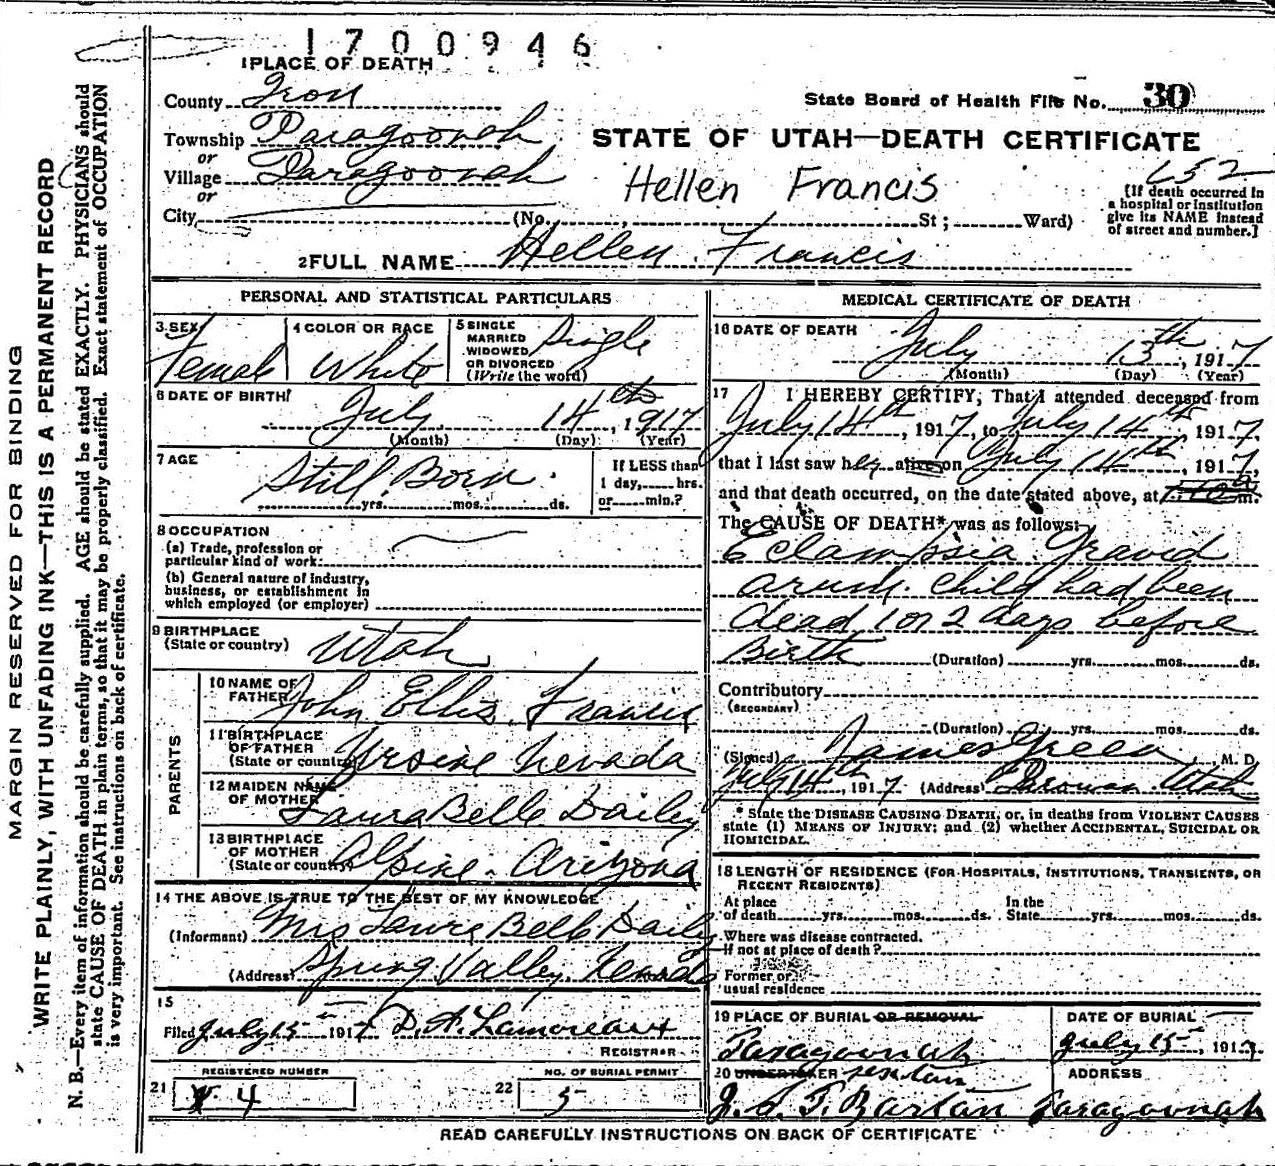 1700946
1 PLACE OF DEATH
County Iron
State Board of Health File No. 30
Township Paragoonah
or
Village Paragoonah
or
City (No. St; Ward)
STATE OF UTAH—DEATH CERTIFICATE
Hellen Francis
152
[If death occurred in
a hospital or institution
give its NAME instead
of street and number.]
2 FULL NAME Hellen Francis
PERSONAL AND STATISTICAL PARTICULARS
3 SEX Female
4 COLOR OR RACE White
5 SINGLE
MARRIED
WIDOWED
OR DIVORCED
(Write the word) Single
6 DATE OF BIRTH
July 14th, 1917
(Month) (Day) (Year)
7 AGE
Still Born.
yrs. mos. ds.
If LESS than
1 day, hrs.
or min.?
8 OCCUPATION
(a) Trade, profession or
particular kind of work
(b) General nature of industry,
business, or establishment in
which employed (or employer)
9 BIRTHPLACE
(State or country) Utah
PARENTS
10 NAME OF
FATHER John Ellis Francis
11 BIRTHPLACE
OF FATHER
(State or country) Ursine Nevada
12 MAIDEN NAME
OF MOTHER Laura Belle Dailey
13 BIRTHPLACE
OF MOTHER
(State or country) Alpine Arizona
14 THE ABOVE IS TRUE TO THE BEST OF MY KNOWLEDGE
(Informant) Mrs Laura Belle Daily
(Address) Spring Valley. Nevada
15
Filed July 15th 1917 D. A. Lamoreaux
REGISTRAR
REGISTERED NUMBER
21 4
NO. OF BURIAL PERMIT
22 5
MEDICAL CERTIFICATE OF DEATH
16 DATE OF DEATH
July 13th, 1917
(Month) (Day) (Year)
17 I HEREBY CERTIFY, That I attended deceased from
July 14th, 1917, to July 14th 1917,
that I last saw her alive on July 14th, 1917,
and that death occurred, on the date stated above, at m.
The CAUSE OF DEATH* was as follows:
Eclampsia Gravid
arum. Child had been
dead 1 or 2 days before
Birth (Duration) yrs. mos. ds.
Contributory
(SECONDARY)
(Duration) yrs. mos. ds.
(Signed) James Green, M. D.
July 14th, 1917 (Address) Parowan Utah
* State the DISEASE CAUSING DEATH, or, in deaths from VIOLENT CAUSES
state (1) MEANS OF INJURY; and (2) whether ACCIDENTAL, SUICIDAL OR
HOMICIDAL.
18 LENGTH OF RESIDENCE (FOR HOSPITALS, INSTITUTIONS, TRANSIENTS, OR
RECENT RESIDENTS)
At place
of death yrs. mos. ds.
In the
State yrs. mos. ds.
Where was disease contracted.
If not at place of death?
Former or
usual residence
19 PLACE OF BURIAL OR REMOVAL
Paragoonah
DATE OF BURIAL
July 15, 1917
20 UNDERTAKER sexton
J. S. T. Barton
ADDRESS
Paragoonah
READ CAREFULLY INSTRUCTIONS ON BACK OF CERTIFICATE
MARGIN RESERVED FOR BINDING
WRITE PLAINLY, WITH UNFADING INK—THIS IS A PERMANENT RECORD
N. B.—Every item of information should be carefully supplied. AGE should be stated EXACTLY. PHYSICIANS should
state CAUSE OF DEATH in plain terms, so that it may be properly classified. Exact statement of OCCUPATION
is very important. See instructions on back of certificate.